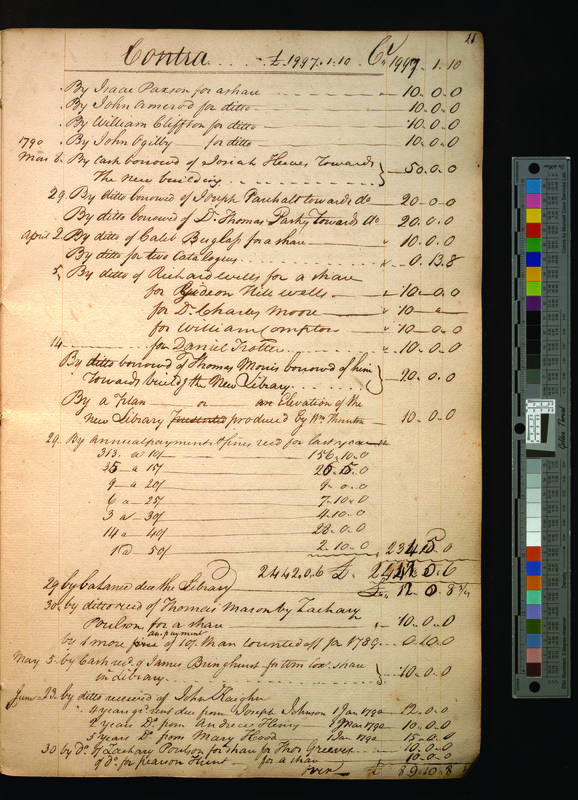 21
Contra £1997.1.10 Cr 1997.1.10
By Isaac Paxson for a share 10.0.0
By John Ormerod for ditto 10.0.0
By William Cliffton for ditto 10.0.0
1790 By John Ogilby for ditto 10.0.0
Mar 8. By Cash borrowed of Josiah Hewes Towards
The new building 50.0.0
29. By ditto borrowed of Joseph towards do 20.0.0
By ditto borrowed of Dr. Thomas Parke Towards do 20.0.0
April 2. By ditto of Caleb for a share 10.0.0
By ditto for two Catalogues 0.13.8
5. By ditto of Richard Wells for a share
for Gideon Hill Wells 10.0.0
for Dr. Charles Moore 10
for William Compton 10.0.0
14 for Daniel Trotter 10.0.0
By ditto borrowed of Thomas Morris borrowed of him
Towards build'g the New Library 20.0.0
By a Plan or an Elevation of the
New Library Presented produced by Wm Thornton 10.0.0
29. By annual payments & fines rec'd for last year
313. a 10/ 156.10.0
35 a 15/ 26.5.0
9 a 20/ 9.0.0
6 a 25/ 7.10.0
3 a 30/ 4.10.0
14 a 40/ 28.0.0
1 a 50/ 2.10.0 234.5.0
2442.0.6 £ 2442.0.6
29 by balance due the Library £ 12.0.8 3/4
30. by ditto rec'd of Thomas Mason by Zachary
Poulson for a share 10.0.0
by 1 more fine an. payment of 10/. than counted off for 1789 0.10.0
May 5. by Cash rec'd of James Bringhurst for share
in Library 10.0.0
June 23. by ditto received of John Kaighn
4 years gr'd rent due from Joseph Johnson 1 Jan 1790 12.0.0
2 years Do from Andrew Henry 1 Mar 1790 10.0.0
5 years Do from Mary Hood 1 Jan 1790 15.0.0
30 by Do of Zachary Poulson for share for Thos Greeves 10.0.0
of Do for Pearson Hunt for a share 10.0.0
over £ 89.10.8